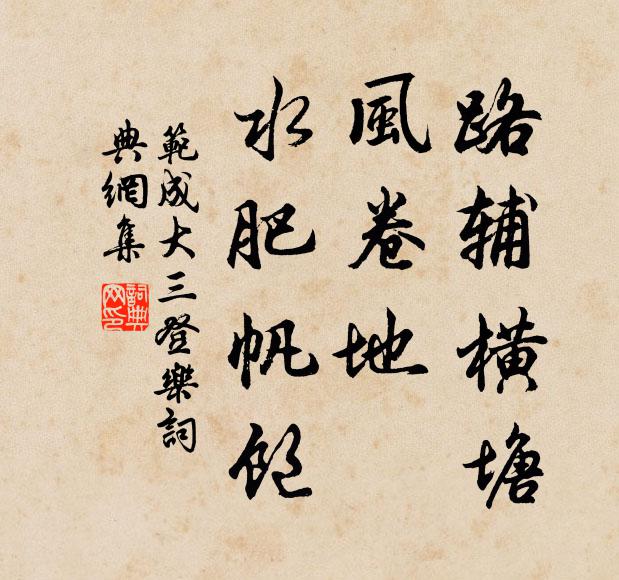 路辅横塘
風卷地
水肥帆飽
範成大三登樂詞
典網集
詞典
网印